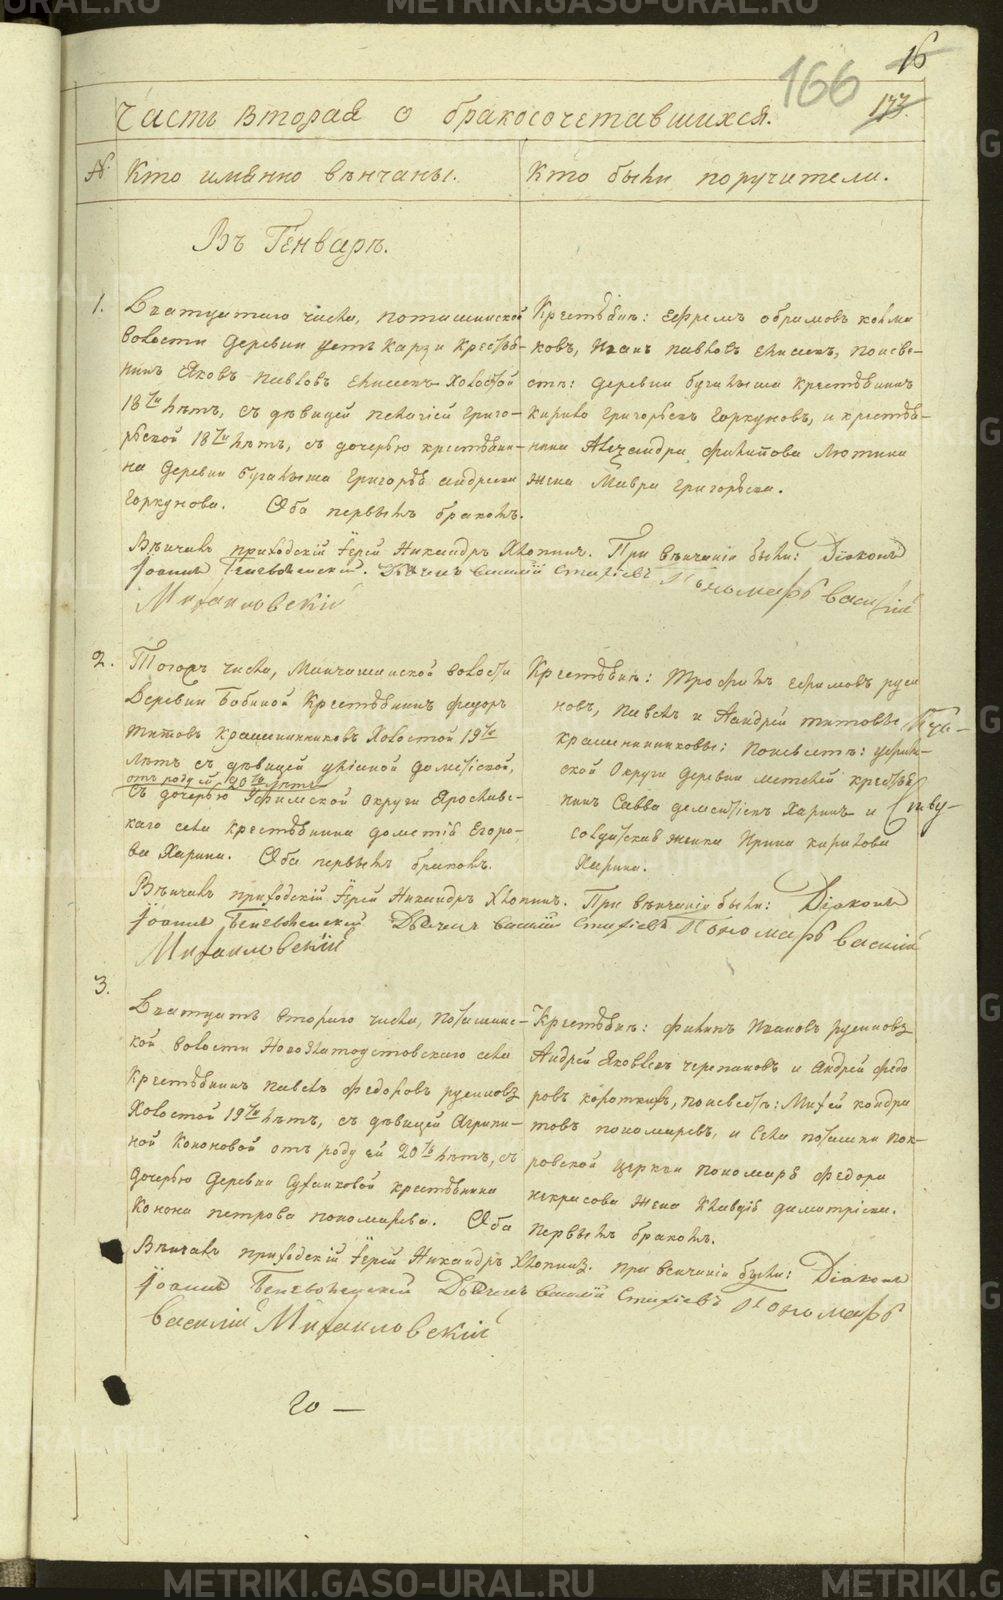 16
166
177.
Часть Вторая о бракосочетавшихся.
№ Кто имянно вѣнчаны. Кто были поручители.
Въ Генварѣ.
1. Дватцатаго числа, поташинской
волости деревни усть карзи крестья-
нинъ Яковъ павловъ холостой
18ти лѣтъ, съ дѣвицей пелагіей григо-
рьевой 18ти лѣтъ, съ дочерью крестьяни-
на деревни бугалыша григорья андреева
горкунова. Оба первымъ бракомъ.
Крестьяне: ефремъ
ковъ, Иванъ павловъ поневе-
стѣ: деревни бугалыша крестьянинъ
кирило григорьевъ горкуновъ, и крестья-
нина Александра филипова лютина
жена мавра григорьева.
Вѣнчалъ приходскій Іерей Никандръ Хлопинъ. При вѣнчаніи были: Діаконъ
Іоаннъ Дьячекъ василій Пономарь василій
Михаиловскій
2. Тогожъ числа, Манчашинской волости
деревни Бобиной Крестьянинъ федоръ
титовъ крашенинниковъ холостой 19ти
лѣтъ съ дѣвицей дометіевой,
отъ роду ей 20ть лѣтъ
съ дочерью Уфимской округи Ярославс-
каго села крестьянина дометія Егоро-
ва Харина. Оба первымъ бракомъ.
Крестьяне: Трофимъ ефимовъ руси
новъ, павелъ и Андрей титовы
крашенинниковы: поневестѣ: уфим-
ской округи деревни крестья-
нинъ Савва дементіевъ Харинъ и
солдатская женка Ирина кирилова
Харина.
Вѣнчалъ приходскій Іерей Никандръ Хлопинъ. При вѣнчаніи были: Діаконъ
Іоаннъ Дьячекъ василій Пономарь василій
Михаиловскій
3. Дватцать втораго числа, поташинс-
кой волости Новозлатоустовскаго села
крестьянинъ павелъ федоровъ русиновъ
холостой 19ти лѣтъ, съ дѣвицей Агрипи-
ной Кононовой отъ роду ей 20ть лѣтъ, съ
дочерью деревни крестьянина
Конона петрова пономарева. Оба первымъ бракомъ.
Крестьяне: филипъ Ивановъ русиновъ
Андрей Яковлевъ черепановъ и андрей федо
ровъ коротких, поневестѣ: Михей кондра
товъ пономаревъ, и села поташки пок-
ровской церкви пономаря федора
некрасова жена клавдія димитріева.
Вѣнчалъ приходскій Іерей Никандръ Хлопинъ. при венчаніи были: Діаконъ
Іоаннъ Дьячекъ василій Пономарь
Василій Михаиловскій
20 —
METRIKI.GASO-URAL.RU